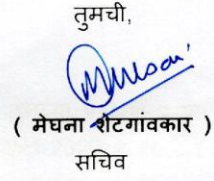 तुमची,
( मेघना शेटगांवकार )
सचिव